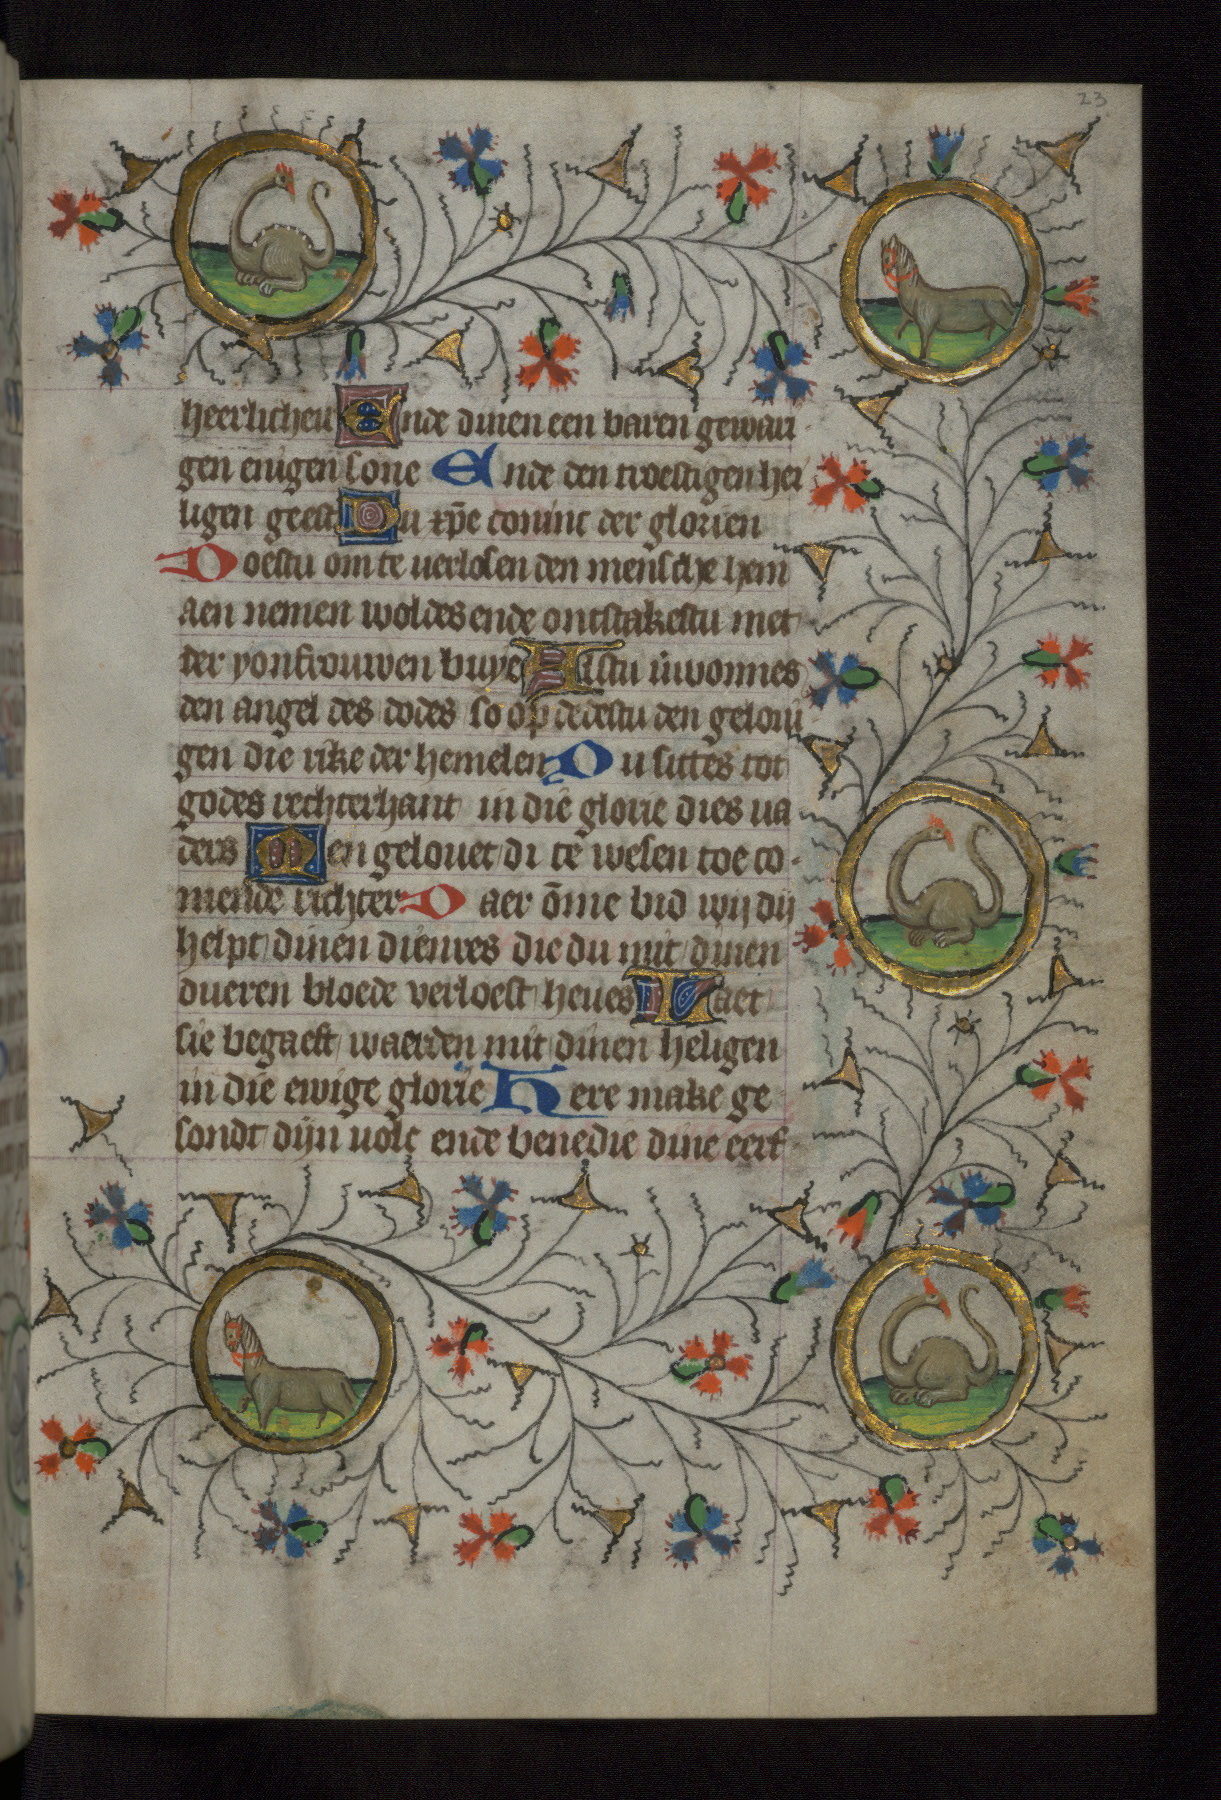 23
heerlicheit Ende dinen een baren gewari
gen enigen sone Ende den troestigen hei
ligen geest Du xp̄e coninc der glorien
Doestu om te verlosen den mensche hem
aen nemen woldes ende ontstakestu niet
der yonfrouwen buyc Alstu uwonnes
den angel des dodes so op dedestu den gelovi
gen die rike der hemelen Du sittes tot
godes rechterhant in die glorie dies va
ders Men gelovet di te wesen toe co
mende richter Daer ōme bid wij dij
helpt dinen dienres die du mit dinen
dueren bloede verloest heves Laet
sie begaeft waerden mit dinen heligen
in die ewige glorie Here make ge
sondt dijn volc ende benedie dine eerf